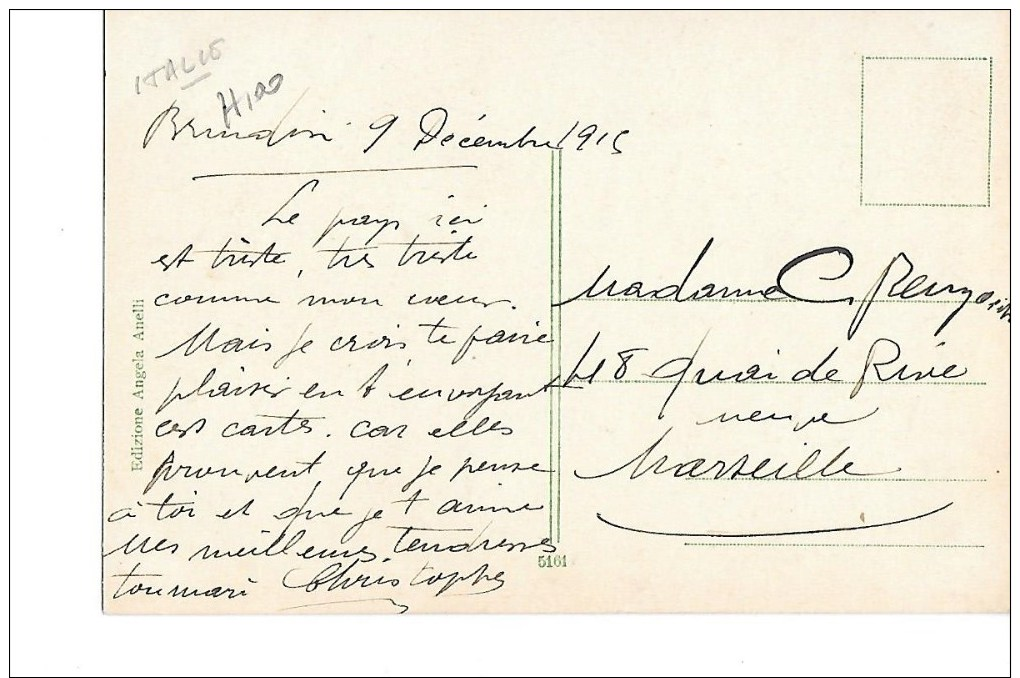 ITALIE
Brindisi 9 Décembre 1915
Le pays ici
est triste, très triste
comme mon coeur.
Mais je crois te faire
plaisir en t envoyant
cest cartes. car elles
prouvent que je pense
à toi et que je t aime
mes meilleures tendresses
ton mari Christophe
Edizione Angela Anelli
5161
Madame C.
48 quai de Rive
neuve
Marseille